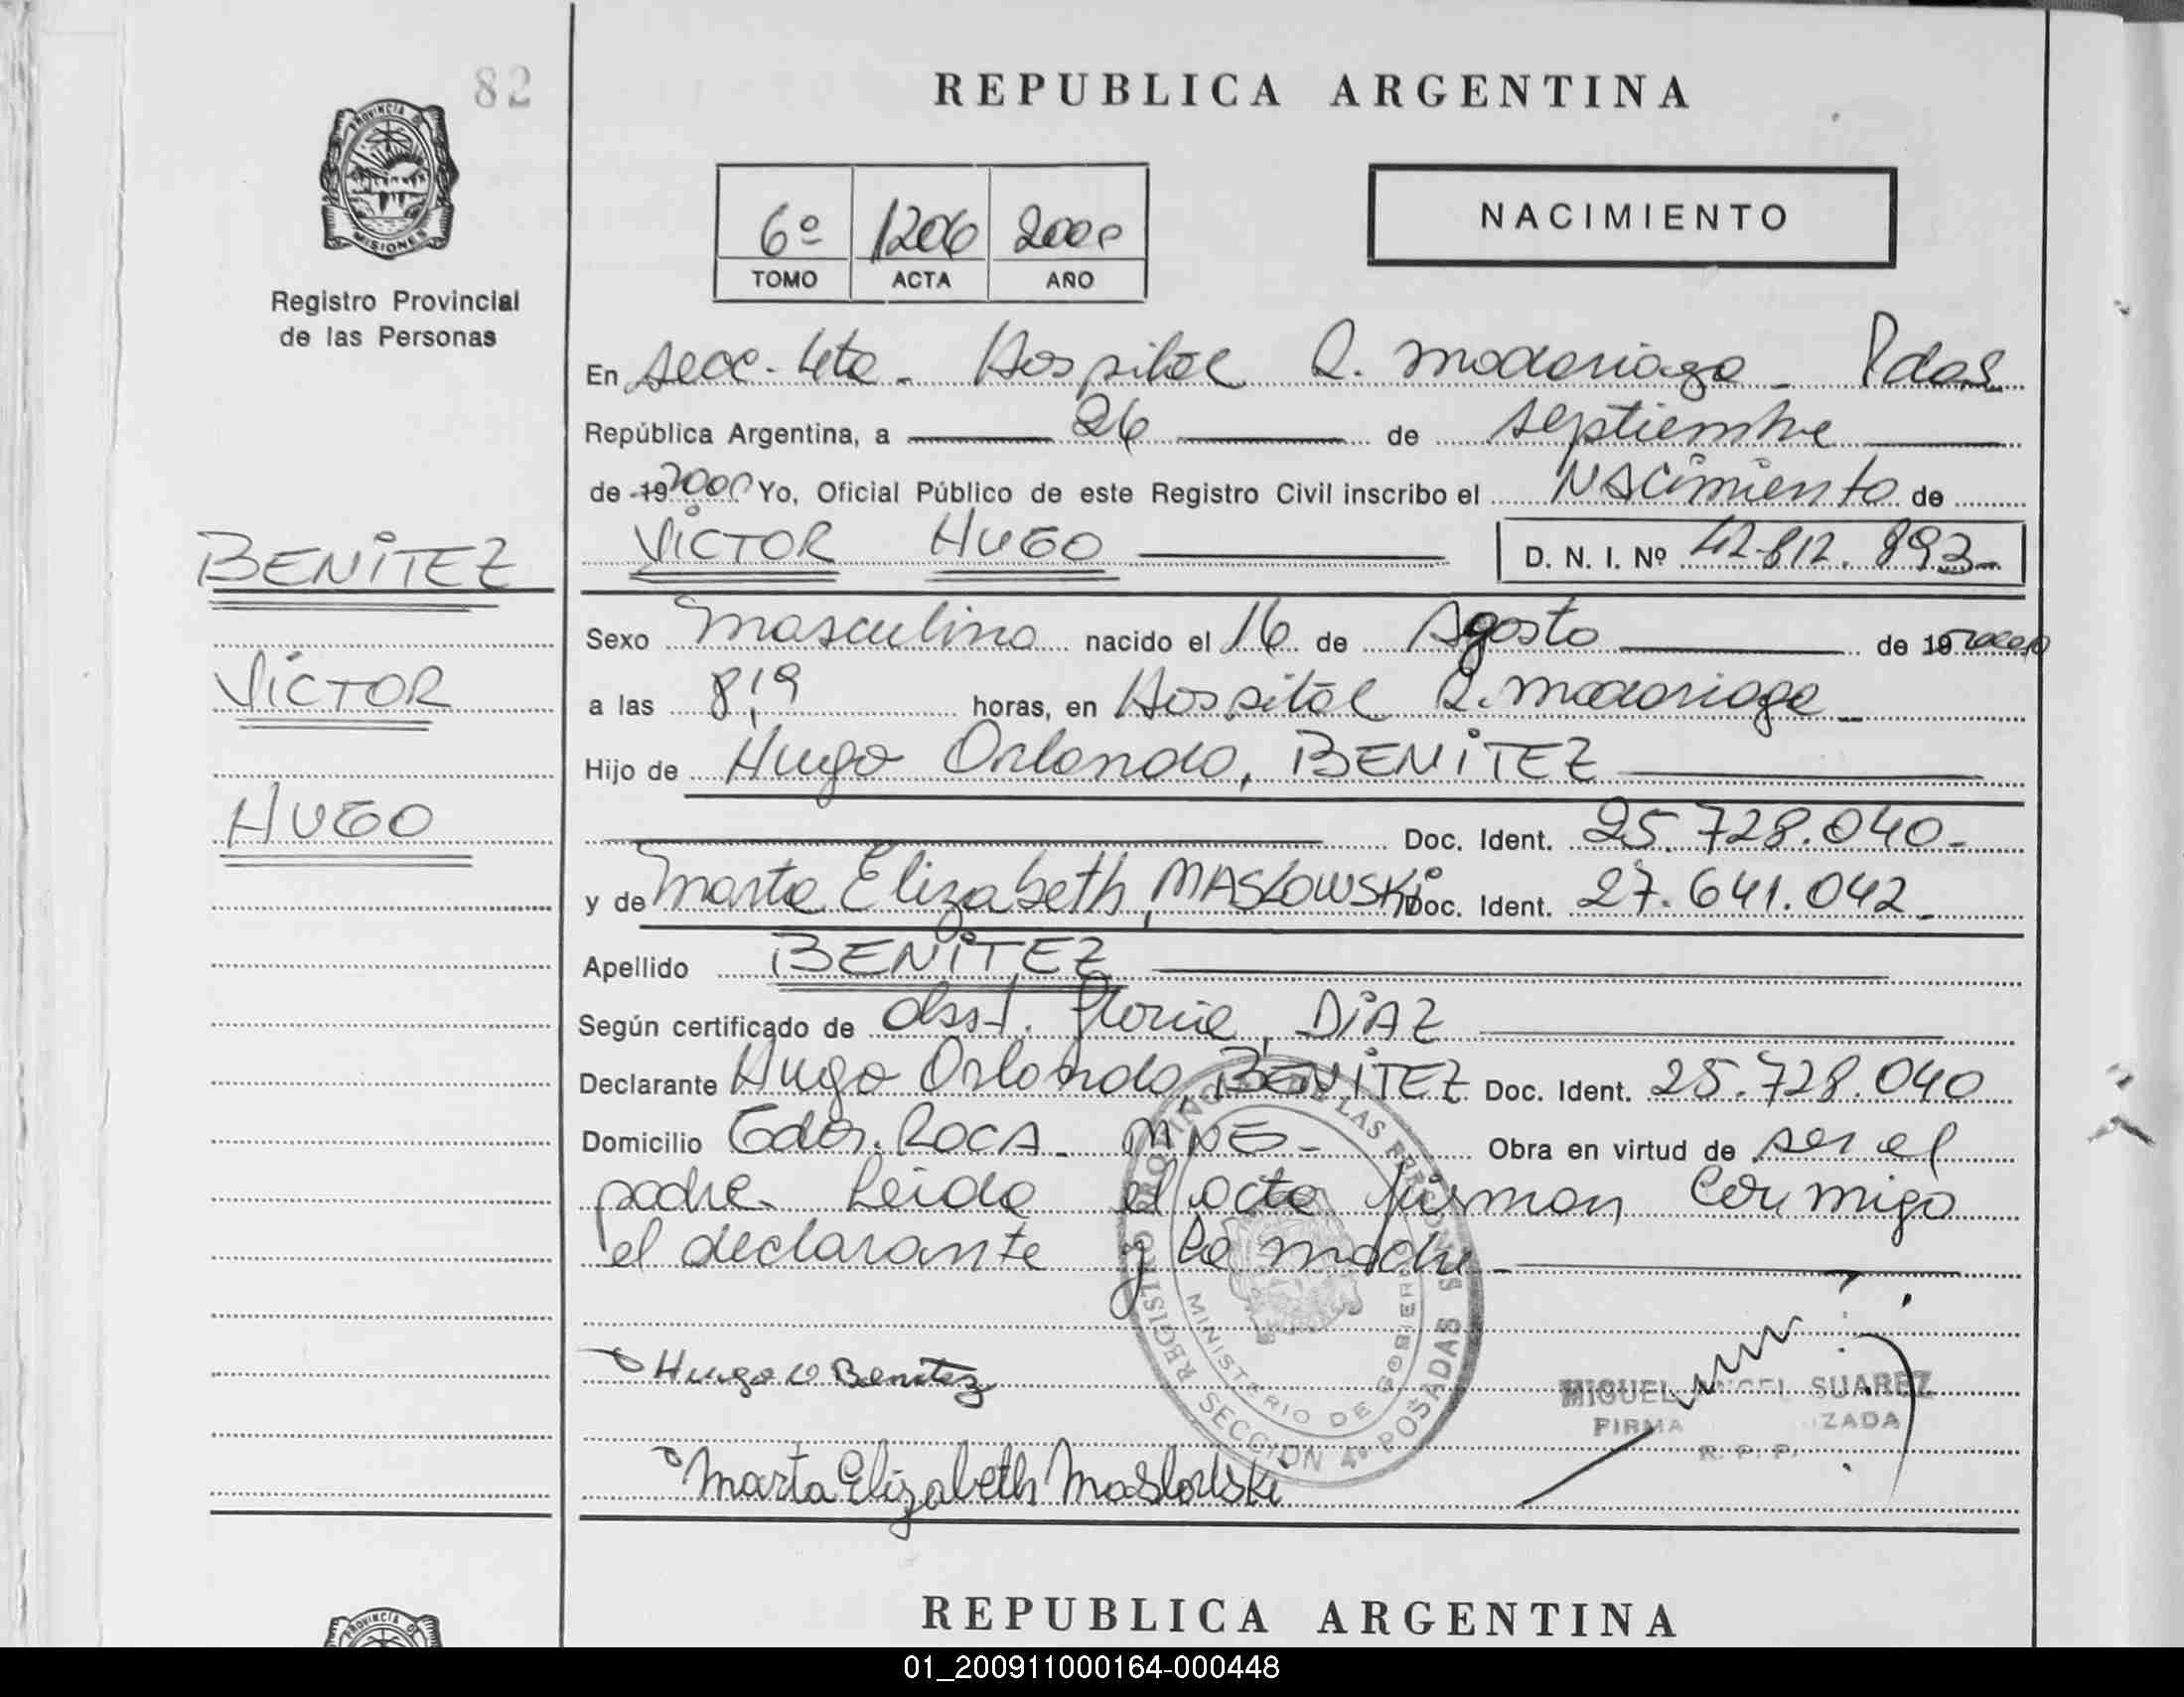 82
REPUBLICA ARGENTINA
PROVINCIA D
MISIONES
Registro Provincial
de las Personas
6º 1206 2000
TOMO ACTA AÑO
NACIMIENTO
En Secc. 4ta - Hospital R. Madariaga - Pdas
República Argentina, a 26 de septiembre
de 19 2000 Yo, Oficial Público de este Registro Civil inscribo el Nacimiento de
VICTOR HUGO D. N. I. Nº 42.812.893-
BENITEZ
Sexo masculino nacido el 16 de Agosto de 19 2000
VICTOR
a las 8,19 horas, en Hospital R. Madariaga
Hijo de Hugo Orlando, BENITEZ
HUGO
Doc. Ident. 25.728.040-
y de Marta Elizabeth, MASLOWSKI Doc. Ident. 27.641.042-
Apellido BENITEZ
Según certificado de obst. Gloria, DIAZ
Declarante Hugo Orlando, BENITEZ Doc. Ident. 25.728.040
Domicilio Gdor. ROCA - MNES - Obra en virtud de ser el
padre. Leida el acta firman conmigo
el declarante y la madre -
REGISTRO PROVINCIAL DE LAS PERSONAS
MINISTERIO DE GOBIERNO
SECCION 4º POSADAS
Hugo O Benitez
MIGUEL ANGEL SUAREZ
FIRMA ZADA
R. P. P.
Marta Elizabeth Maslowski
PROVINCIA D
REPUBLICA ARGENTINA
01_200911000164-000448